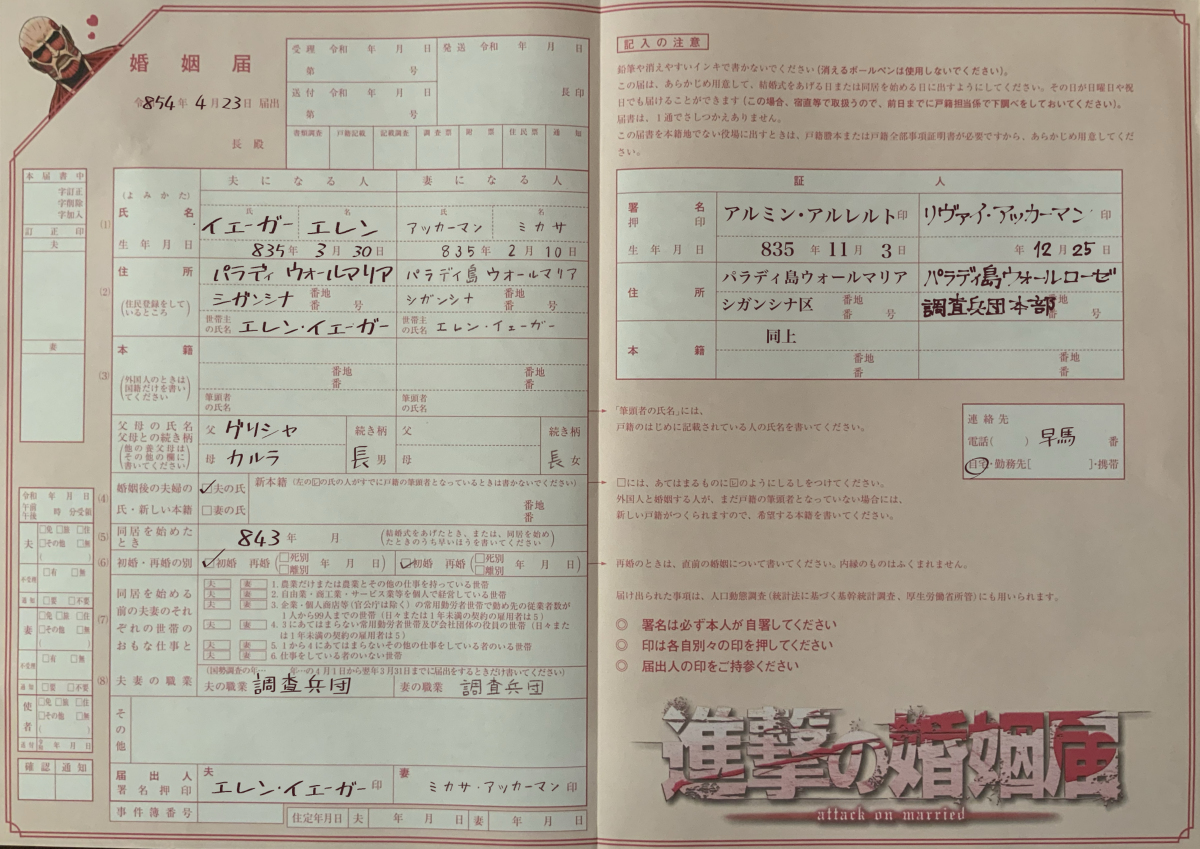 婚姻届
令854年4月23日 届出
長 殿
受理 令和 年 月 日
第 号
発送 令和 年 月 日
送付 令和 年 月 日
第 号
長印
書類調査 戸籍記載 記載調査 調査票 附票 住民票 通知
本届書中
字訂正
字削除
字加入
訂正印
夫
妻
夫になる人 妻になる人
(1)
(よみかた)
氏名
氏 名 氏 名
イェーガー エレン アッカーマン ミカサ
生年月日 835年 3月 30日 835年 2月 10日
(2)
住所
(住民登録をしているところ)
パラディ ウォールマリア パラディ島 ウォールマリア
シガンシナ 番地 番 号 シガンシナ 番地 番 号
世帯主の氏名 エレン・イェーガー 世帯主の氏名 エレン・イェーガー
(3)
本籍
(外国人のときは国籍だけを書いてください)
番地 番 番地 番
筆頭者の氏名 筆頭者の氏名
父母の氏名
父母との続き柄
(他の養父母はその他の欄に書いてください)
父 グリシャ 続き柄 父 続き柄
母 カルラ 長男 母 長女
(4)
婚姻後の夫婦の氏・新しい本籍
□夫の氏
□妻の氏
新本籍 (左の☑の氏の人がすでに戸籍の筆頭者となっているときは書かないでください)
番地
番
(5)
同居を始めたとき 843年 月 (結婚式をあげたとき、または、同居を始めたときのうち早いほうを書いてください)
(6)
初婚・再婚の別 □初婚 再婚 (□死別 □離別 年 月 日) □初婚 再婚 (□死別 □離別 年 月 日)
(7)
同居を始める前の夫妻のそれぞれの世帯のおもな仕事と
夫 妻 1.農業だけまたは農業とその他の仕事を持っている世帯
夫 妻 2.自由業・商工業・サービス業等を個人で経営している世帯
夫 妻 3.企業・個人商店等(官公庁は除く)の常用勤労者世帯で勤め先の従業者数が
1人から99人までの世帯(日々または1年未満の契約の雇用者は5)
夫 妻 4.3にあてはまらない常用勤労者世帯及び会社団体の役員の世帯(日々また
は1年未満の契約の雇用者は5)
夫 妻 5.1から4にあてはまらないその他の仕事をしている者のいる世帯
夫 妻 6.仕事をしている者のいない世帯
(8)
夫妻の職業
(国勢調査の年…　年…の4月1日から翌年3月31日までに届出をするときだけ書いてください)
夫の職業 調査兵団 妻の職業 調査兵団
その他
届出人署名押印
夫 エレン・イェーガー 印
妻 ミカサ・アッカーマン 印
事件簿番号
住定年月日 夫 年 月 日 妻 年 月 日
令和 年 月 日
午前 午後 時 分受領
夫 □免 □旅 □住
□その他 □無
( )
不受理 □有 □無
通知 □要 □不要
妻 □免 □旅 □住
□その他 □無
( )
不受理 □有 □無
通知 □要 □不要
使者 □免 □旅 □住
□その他 □無
( )
通知 年 月 日
確認 通知
記入の注意
鉛筆や消えやすいインキで書かないでください(消えるボールペンは使用しないでください)。
この届は、あらかじめ用意して、結婚式をあげる日または同居を始める日に出すようにしてください。その日が日曜日や祝
日でも届けることができます(この場合、宿直等で取扱うので、前日までに戸籍担当係で下調べをしておいてください)。
届書は、1通でさしつかえありません。
この届書を本籍地でない役場に出すときは、戸籍謄本または戸籍全部事項証明書が必要ですから、あらかじめ用意してくだ
さい。
証人
署名押印 アルミン・アルレルト 印 リヴァイ・アッカーマン 印
生年月日 835 年 11月 3日 年 12月 25日
住所
パラディ島ウォールマリア パラディ島ウォールローゼ
シガンシナ区 番地 番 号 調査兵団本部 番地 番 号
本籍 同上 番地 番 番地 番
「筆頭者の氏名」には、
戸籍のはじめに記載されている人の氏名を書いてください。
連絡先
電話( ) 早馬 番
自宅・勤務先[ ]・携帯
□には、あてはまるものに☑のようにしるしをつけてください。
外国人と婚姻する人が、まだ戸籍の筆頭者となっていない場合には、
新しい戸籍がつくられますので、希望する本籍を書いてください。
再婚のときは、直前の婚姻について書いてください。内縁のものはふくまれません。
届け出られた事項は、人口動態調査(統計法に基づく基幹統計調査、厚生労働省所管)にも用いられます。
◎ 署名は必ず本人が自署してください
◎ 印は各自別々の印を押してください
◎ 届出人の印をご持参ください
進撃の婚姻届
attack on married